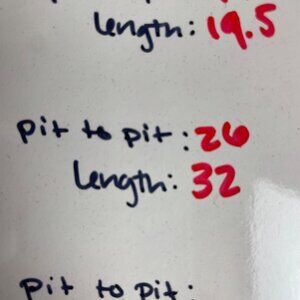 length: 19.5
pit to pit: 26
length: 32
pit to pit: